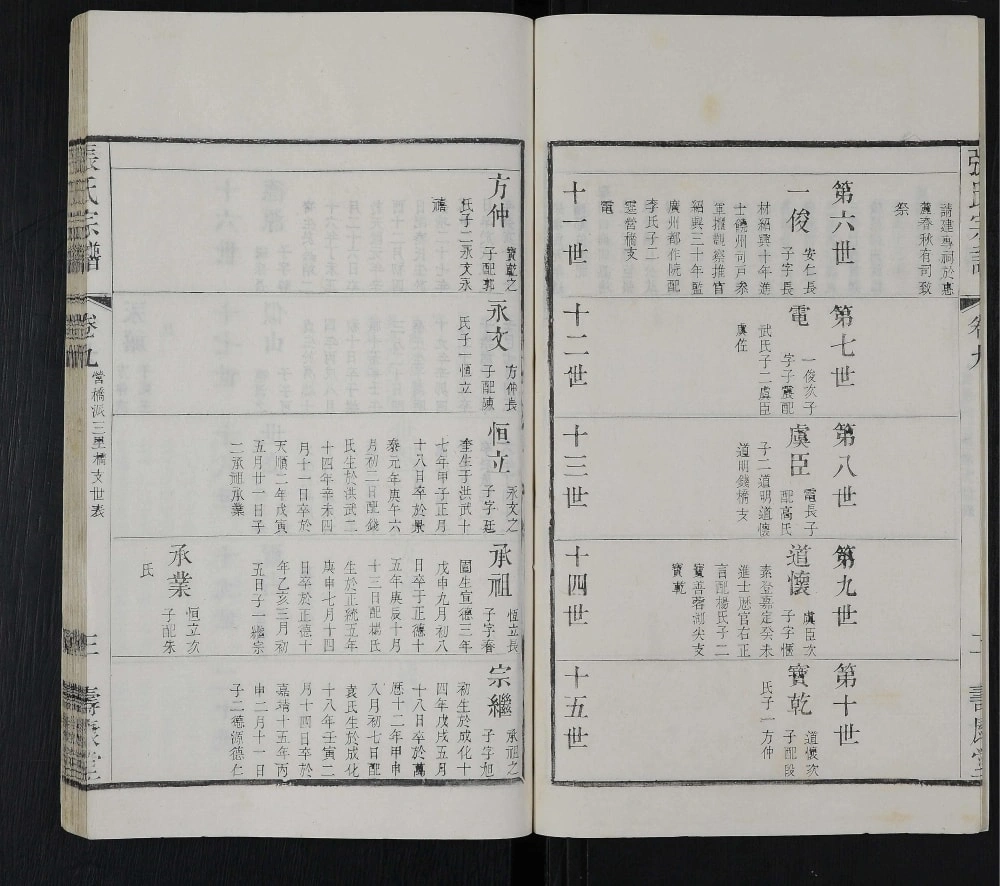 張氏宗譜
卷九
二
壽宸堂
請建專祠於惠
蘆春秋有司致
祭
第六世
一俊
安仁長
子字長
材紹興十年進
士饒州司戶參
軍擢觀察推官
紹興三十年監
廣州都作院配
李氏子二
靈營橋支
電
第七世
電
一俊次子
字子震配
武氏子二虞臣
虞佐
第八世
虞臣
電長子
配高氏
子二道明道懷
道明錢橋支
第九世
道懷
虞臣次
子字愜
素登嘉定癸未
進士歷官右正
言配楊氏子二
寶善蓉湖尖支
寶乾
第十世
寶乾
道懷次
子配段
氏子一方仲
十一世
十二世
十三世
十四世
十五世
方仲
寶乾之
子配郭
氏子二永文永
禧
永文
方仲長
子配陳
氏子一恒立
恒立
永文之
子字廷
奎生于洪武十
七年甲子正月
十八日卒於景
泰元年庚午六
月初二日配錢
氏生於洪武二
十四年辛未四
月十一日卒於
天順二年戊寅
五月廿一日子
二承祖承業
承祖
恒立長
子字春
圃生宣德三年
戊申九月初八
日卒于正德十
五年庚辰十月
十三日配楊氏
生於正統五年
庚申七月十四
日卒於正德十
年乙亥三月初
五日子一繼宗
承業
恒立次
子配朱
氏
宗繼
承祖之
子字旭
初生於成化十
四年戊戌五月
十八日卒於萬
歷十二年甲申
八月初七日配
袁氏生於成化
十八年壬寅二
月十四日卒於
嘉靖十五年丙
申二月十一日
子二德源德仁
張氏宗譜
卷九
營橋派三里橋支世表
三
壽宸堂